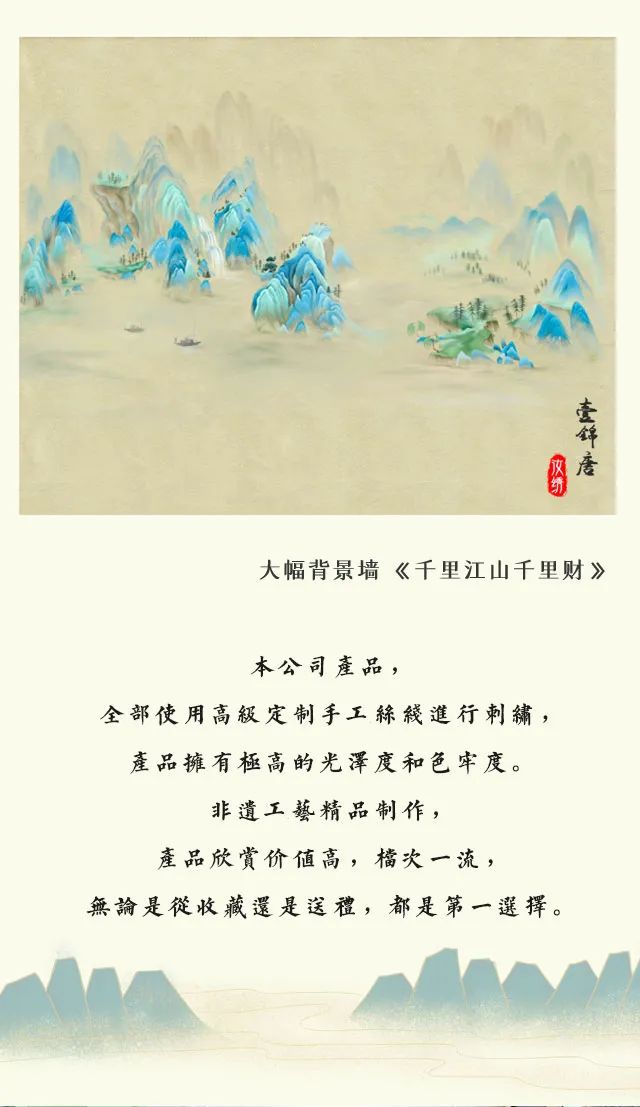 壹錦唐
汝绣
大幅背景墙《千里江山千里财》
本公司產品，
全部使用高級定制手工絲綫進行刺繡，
產品擁有極高的光澤度和色牢度。
非遺工藝精品制作，
產品欣賞价值高，檔次一流，
無論是從收藏還是送禮，都是第一選擇。